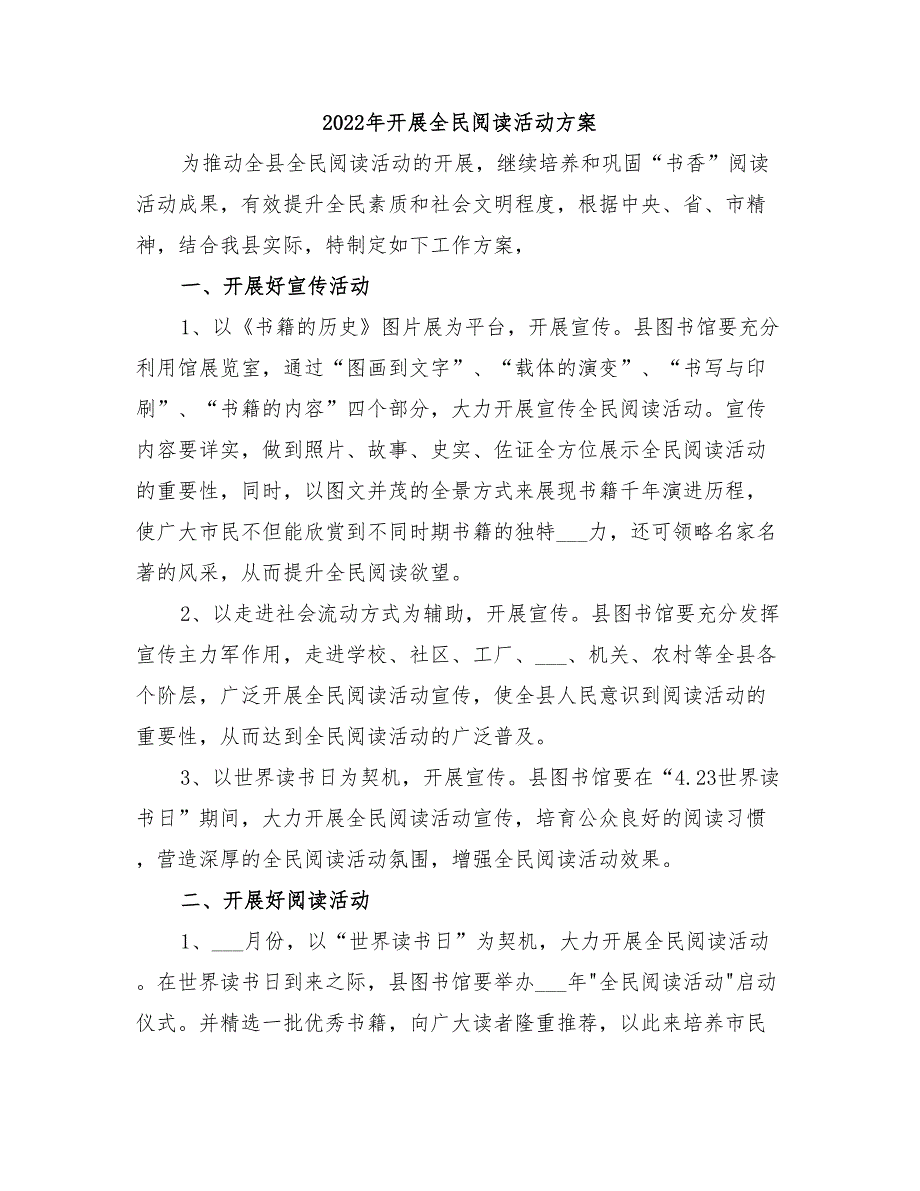 2022年开展全民阅读活动方案
为推动全县全民阅读活动的开展，继续培养和巩固“书香”阅读
活动成果，有效提升全民素质和社会文明程度，根据中央、省、市精
神，结合我县实际，特制定如下工作方案，
一、开展好宣传活动
1、以《书籍的历史》图片展为平台，开展宣传。县图书馆要充分
利用馆展览室，通过“图画到文字”、“载体的演变”、“书写与印
刷”、“书籍的内容”四个部分，大力开展宣传全民阅读活动。宣传
内容要详实，做到照片、故事、史实、佐证全方位展示全民阅读活动
的重要性，同时，以图文并茂的全景方式来展现书籍千年演进历程，
使广大市民不但能欣赏到不同时期书籍的独特___力，还可领略名家名
著的风采，从而提升全民阅读欲望。
2、以走进社会流动方式为辅助，开展宣传。县图书馆要充分发挥
宣传主力军作用，走进学校、社区、工厂、___、机关、农村等全县各
个阶层，广泛开展全民阅读活动宣传，使全县人民意识到阅读活动的
重要性，从而达到全民阅读活动的广泛普及。
3、以世界读书日为契机，开展宣传。县图书馆要在“4.23世界读
书日”期间，大力开展全民阅读活动宣传，培育公众良好的阅读习惯
，营造深厚的全民阅读活动氛围，增强全民阅读活动效果。
二、开展好阅读活动
1、___月份，以“世界读书日”为契机，大力开展全民阅读活动
。在世界读书日到来之际，县图书馆要举办___年"全民阅读活动"启动
仪式。并精选一批优秀书籍，向广大读者隆重推荐，以此来培养市民